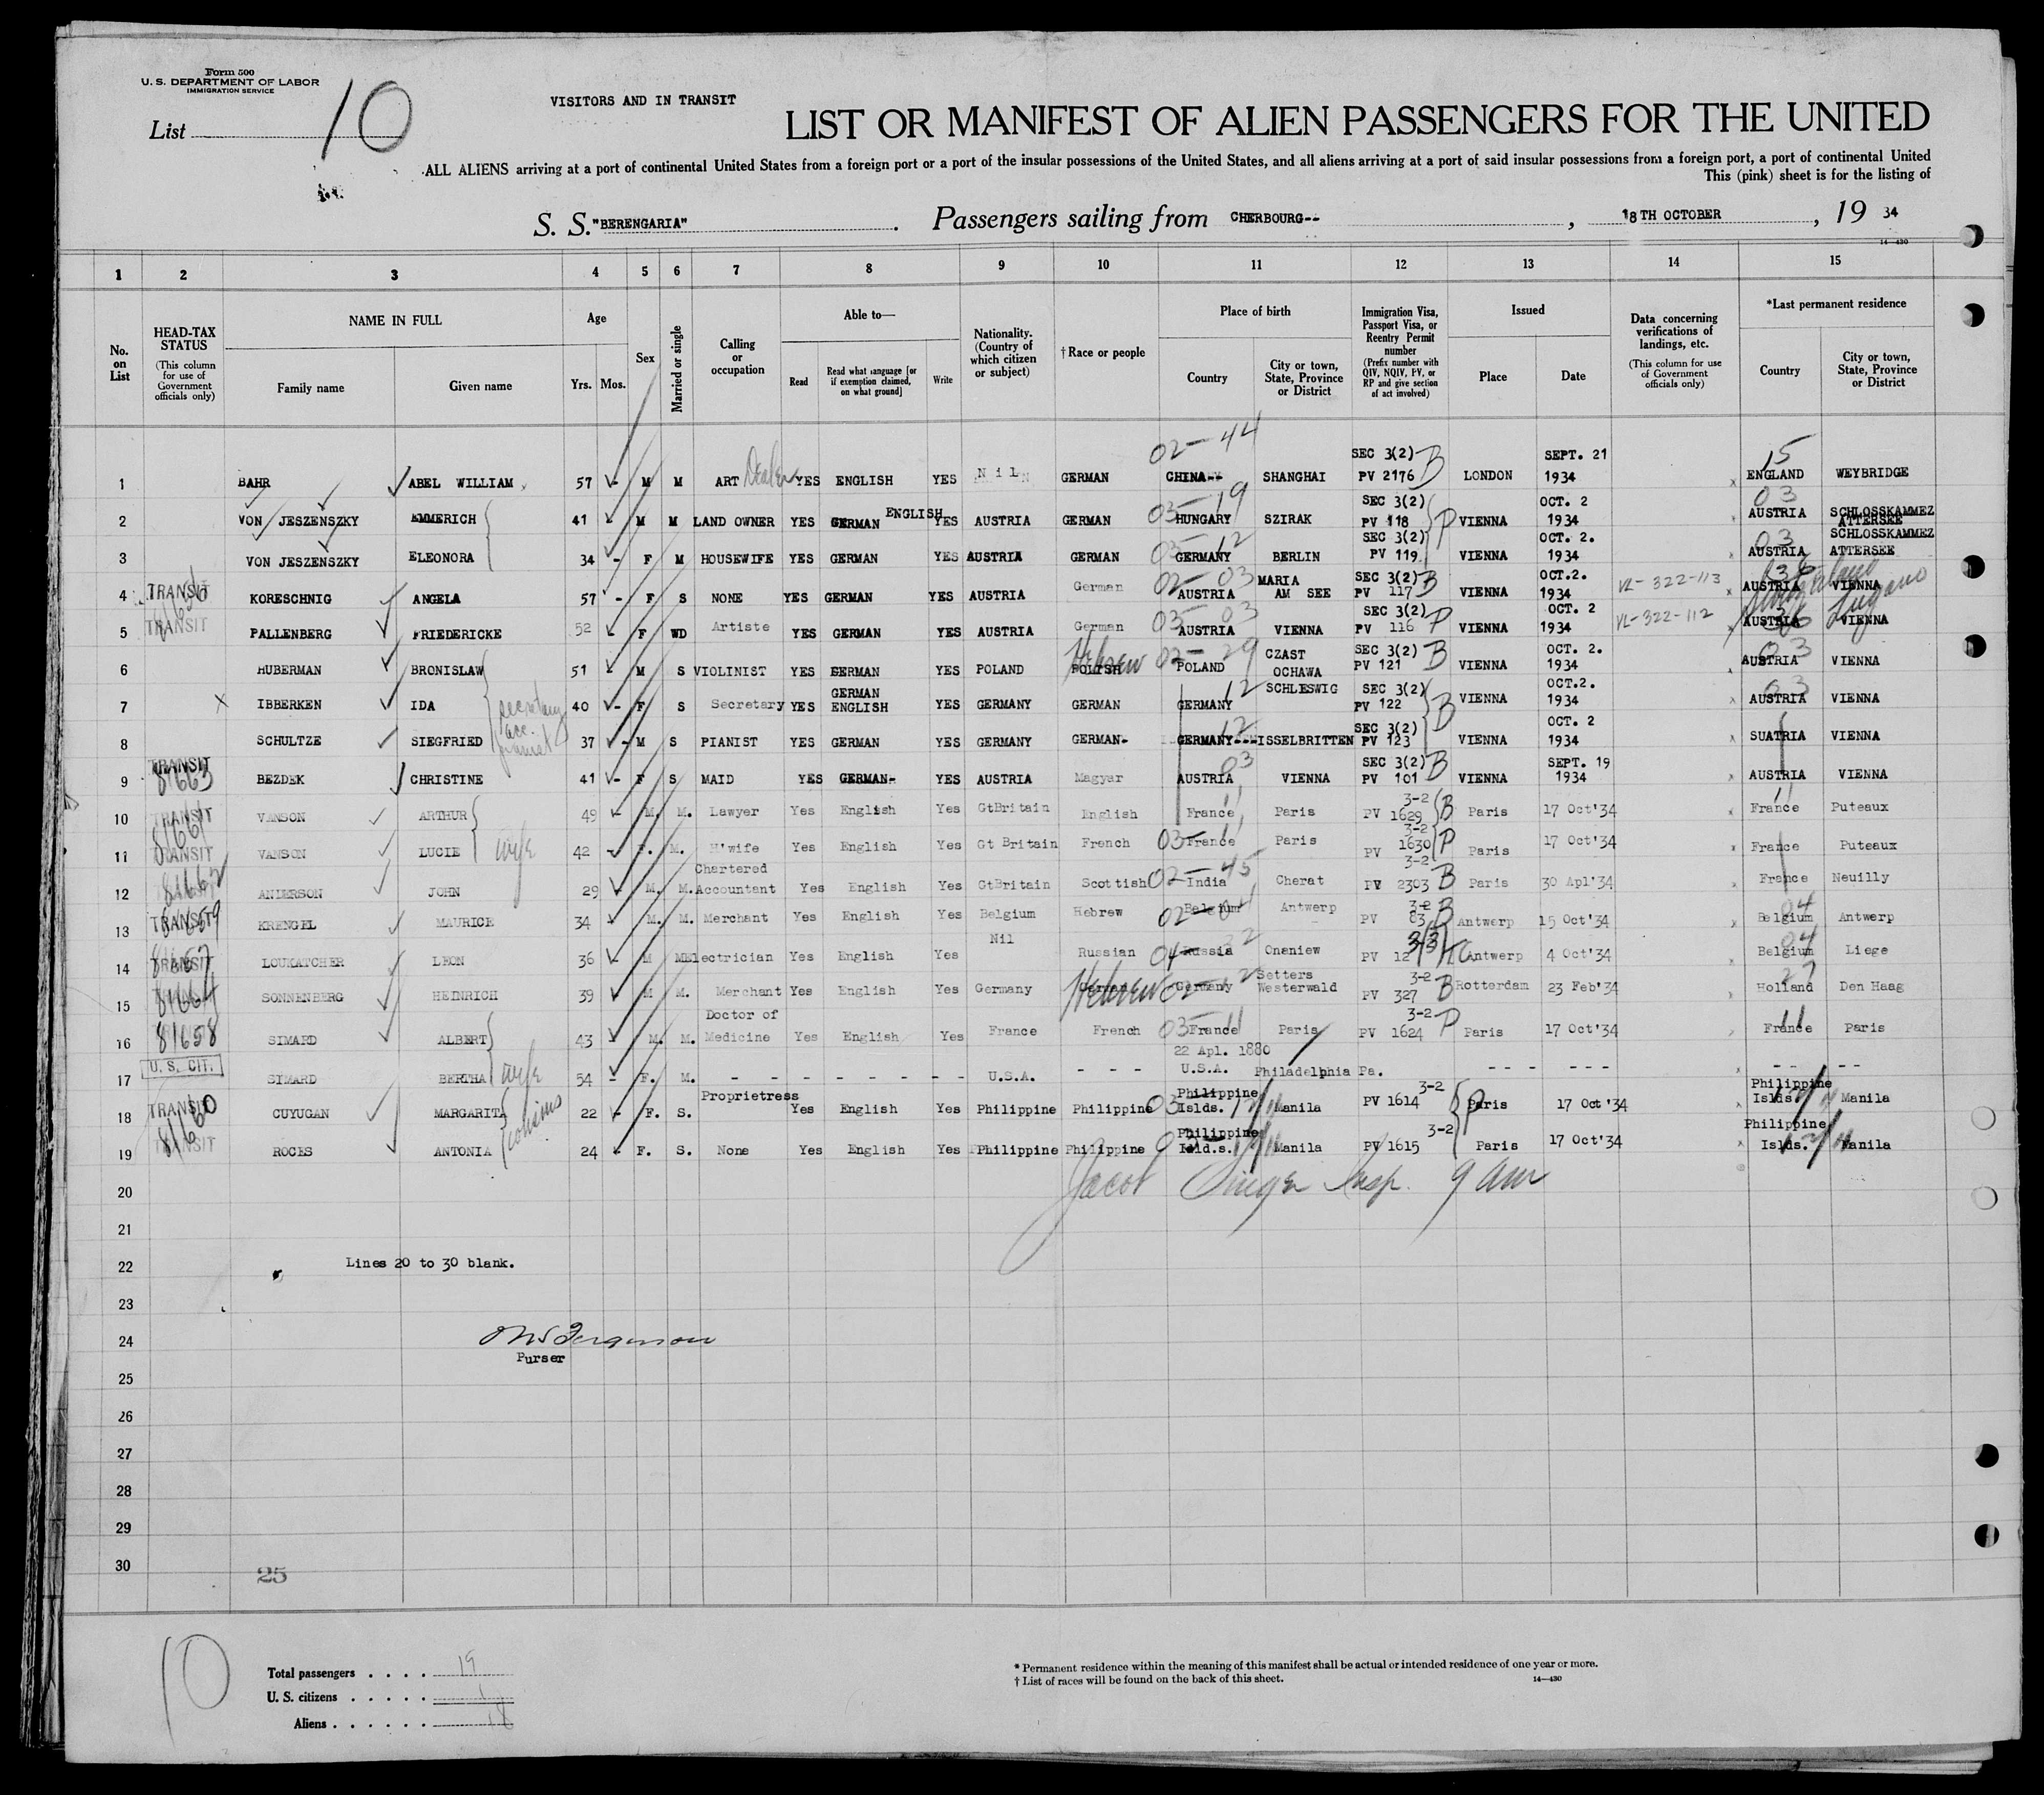 Form 500
U. S. DEPARTMENT OF LABOR
IMMIGRATION SERVICE
List 10
VISITORS AND IN TRANSIT
LIST OR MANIFEST OF ALIEN PASSENGERS FOR THE UNITED
ALL ALIENS arriving at a port of continental United States from a foreign port or a port of the insular possessions of the United States, and all aliens arriving at a port of said insular possessions from a foreign port, a port of continental United
This (pink) sheet is for the listing of
S. S. "BERENGARIA" . Passengers sailing from CHERBOURG-- , 18TH OCTOBER , 19 34
14—430
1 2 3 4 5 6 7 8 9 10 11 12 13 14 15
No. on List
HEAD-TAX STATUS (This column for use of Government officials only)
NAME IN FULL Family name Given name
Age Yrs. Mos.
Sex
Married or single
Calling or occupation
Able to— Read Read what language [or if exemption claimed, on what ground] Write
Nationality. (Country of which citizen or subject)
†Race or people
Place of birth Country City or town, State, Province or District
Immigration Visa, Passport Visa, or Reentry Permit number (Prefix number with QIV, NQIV, PV, or RP and give section of act involved)
Issued Place Date
Data concerning verifications of landings, etc. (This column for use of Government officials only)
*Last permanent residence Country City or town, State, Province or District
1 BAHR ABEL WILLIAM 57 - M M ART Dealer YES ENGLISH YES Nil GERMAN 02-44 CHINA-- SHANGHAI SEC 3(2) PV 2176 B LONDON SEPT. 21 1934 15 ENGLAND WEYBRIDGE
2 VON JESZENSZKY EMMERICH 41 - M M LAND OWNER YES GERMAN ENGLISH YES AUSTRIA GERMAN 03-19 HUNGARY SZIRAK SEC 3(2) PV 118 P VIENNA OCT. 2 1934 03 AUSTRIA SCHLOSSKAMMEZ ATTERSEE
3 VON JESZENSZKY ELEONORA 34 - F M HOUSEWIFE YES GERMAN YES AUSTRIA GERMAN 03-12 GERMANY BERLIN SEC 3(2) PV 119. VIENNA OCT. 2. 1934 03 AUSTRIA SCHLOSSKAMMEZ ATTERSEE
4 TRANSIT KORESCHNIG ANGELA 57 - F S NONE YES GERMAN YES AUSTRIA German 02-03 AUSTRIA MARIA AM SEE SEC 3(2) PV 117 B VIENNA OCT.2. 1934 VL-322-113 36 AUSTRIA VIENNA
5 TRANSIT PALLENBERG FRIEDERICKE 52 - F WD Artiste YES GERMAN YES AUSTRIA German 03-03 AUSTRIA VIENNA SEC 3(2) PV 116 P VIENNA OCT. 2 1934 VL-322-112 36 AUSTRIA VIENNA Lugano
6 HUBERMAN BRONISLAW 51 - M S VIOLINIST YES GERMAN YES POLAND POLISH Hebrew 02-29 POLAND CZAST OCHAWA SEC 3(2) PV 121 B VIENNA OCT. 2. 1934 03 AUSTRIA VIENNA
7 X IBBERKEN IDA secretary 40 - F S Secretary YES GERMAN ENGLISH YES GERMANY GERMAN 12 GERMANY SCHLESWIG SEC 3(2) PV 122 B VIENNA OCT.2. 1934 03 AUSTRIA VIENNA
8 SCHULTZE SIEGFRIED acc. pianist 37 - M S PIANIST YES GERMAN YES GERMANY GERMAN- 12 GERMANY--- ISSELBRITTEN SEC 3(2) PV 123 VIENNA OCT. 2 1934 SUATRIA VIENNA
9 TRANSIT 81663 BEZDEK CHRISTINE 41 - F S MAID YES GERMAN- YES AUSTRIA Magyar 03 AUSTRIA VIENNA SEC 3(2) PV 101 B VIENNA SEPT. 19 1934 AUSTRIA VIENNA
10 TRANSIT VANSON ARTHUR 49 - M. M. Lawyer Yes English Yes GtBritain English 11 France Paris 3-2 PV 1629 B Paris 17 Oct'34 11 France Puteaux
11 TRANSIT 81661 VANSON LUCIE wife 42 - F. M. H'wife Yes English Yes Gt Britain French 03-11 France Paris 3-2 PV 1630 P Paris 17 Oct'34 France Puteaux
12 81662 ANDERSON JOHN 29 - M. M. Chartered Accountant Yes English Yes GtBritain Scottish 02-45 India Cherat 3-2 PV 2303 B Paris 30 Apl'34 France Neuilly
13 TRANSIT 81659 KRENGEL MAURICE 34 - M. M. Merchant Yes English Yes Belgium Hebrew 02-04 Belgium Antwerp 3-2 PV 83 B Antwerp 15 Oct'34 04 Belgium Antwerp
14 TRANSIT 81657 LOUKATCHER LEON 36 - M M Electrician Yes English Yes Nil Russian 04-32 Russia Onaniew 3(3) PV 12 Antwerp 4 Oct'34 04 Belgium Liege
15 81664 SONNENBERG HEINRICH 39 M M. Merchant Yes English Yes Germany Hebrew 02-12 Germany Setters Westerwald 3-2 PV 327 B Rotterdam 23 Feb'34 27 Holland Den Haag
16 81658 SIMARD ALBERT 43 - M. M. Doctor of Medicine Yes English Yes France French 03-11 France Paris 3-2 PV 1624 P Paris 17 Oct'34 11 France Paris
17 U. S. CIT. SIMARD BERTHA wife 54 - F. M. - - - - - - - - U.S.A. - - - 22 Apl. 1880 U.S.A. Philadelphia Pa. - - - - - - - - - -
18 TRANSIT 81660 CUYUGAN MARGARITA cousins 22 - F. S. Proprietress Yes English Yes Philippine Philippine 03 Philippine Islds. Manila PV 1614 3-2 P Paris 17 Oct'34 Philippine Islds. Manila
19 TRANSIT ROCES ANTONIA 24 - F. S. None Yes English Yes Philippine Philippine Philippine Isld.s. Manila PV 1615 3-2 Paris 17 Oct'34 Philippine Islds. Manila
20 Jacob Singer Insp. 9 am
21
22 Lines 20 to 30 blank.
23
24 Ferguson
Purser
25
26
27
28
29
30
25
10
Total passengers . . . . 19
U. S. citizens . . . . . 1
Aliens . . . . . . 18
* Permanent residence within the meaning of this manifest shall be actual or intended residence of one year or more.
† List of races will be found on the back of this sheet. 14—430